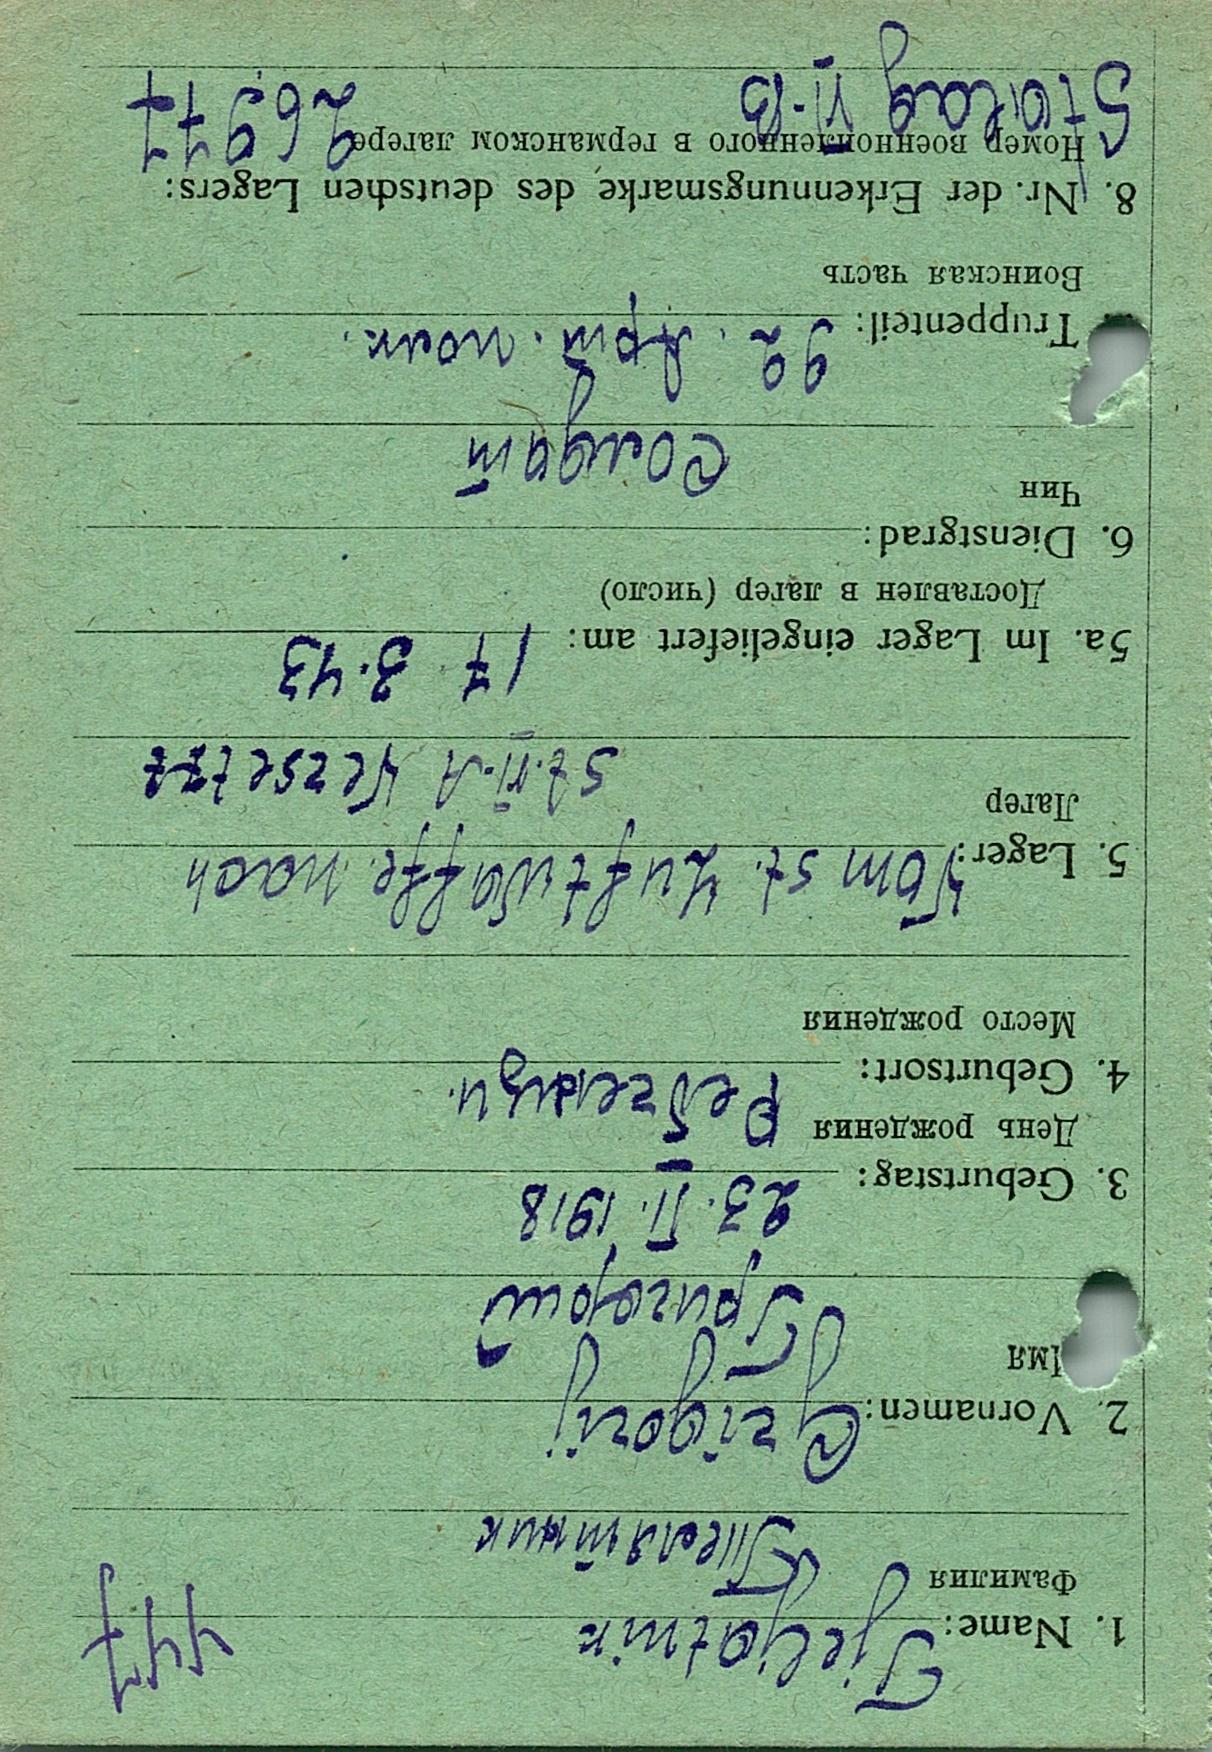 447
1. Name: Tjeljatnik
Фамилия Телятник
2. Vornamen: Grigorij
Имя Григорий
3. Geburtstag: 23. II. 1918
День рождения
4. Geburtsort:
Место рождения
5. Lager: Vom St. Luftwaffe nach
Лагер St. VI-A Versetzt
5a. Im Lager eingeliefert am: 17 3.43
Доставлен в лагер (число)
6. Dienstgrad:
Чин Солдат
Truppenteil: 92. Арт. полк.
Воинская часть
8. Nr. der Erkennungsmarke des deutschen Lagers:
Номер военнопленного в германском лагере 26977
Stalag VI-B